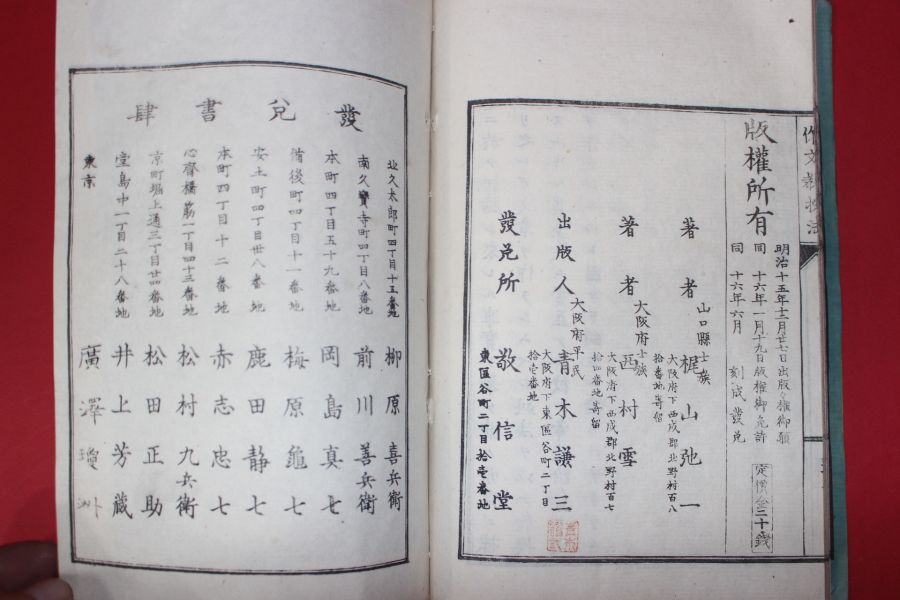 版權所有
明治十五年十二月廿七日出版々權御願
同 十六年一月十九日版權御免許
同 十六年六月 刻成發兌
定價金三十錢
著者 山口縣士族 梶山弛一
大阪府下西成郡北野村百八拾番地寄留
著者 大阪府士族 西村雪
大阪府下西成郡北野村百七拾四番地寄留
出版人 大阪府平民 青木謙三
大阪府下東區谷町二丁目拾壱番地
發兌所 敬信堂
東區谷町二丁目拾壱番地
發兌書肆
北久太郎町四丁目十五番地 柳原喜兵衛
南久寶寺町四丁目八番地 前川善兵衛
本町四丁目五十九番地 岡島真七
備後町四丁目十一番地 梅原龜七
安土町四丁目卅八番地 鹿田静七
本町四丁目十二番地 赤志忠七
心齋橋筋一丁目四十三番地 松村九兵衛
京町堀上通三丁目廿四番地 松田正助
堂島中一丁目二十八番地 井上芳藏
東京 廣澤瓊